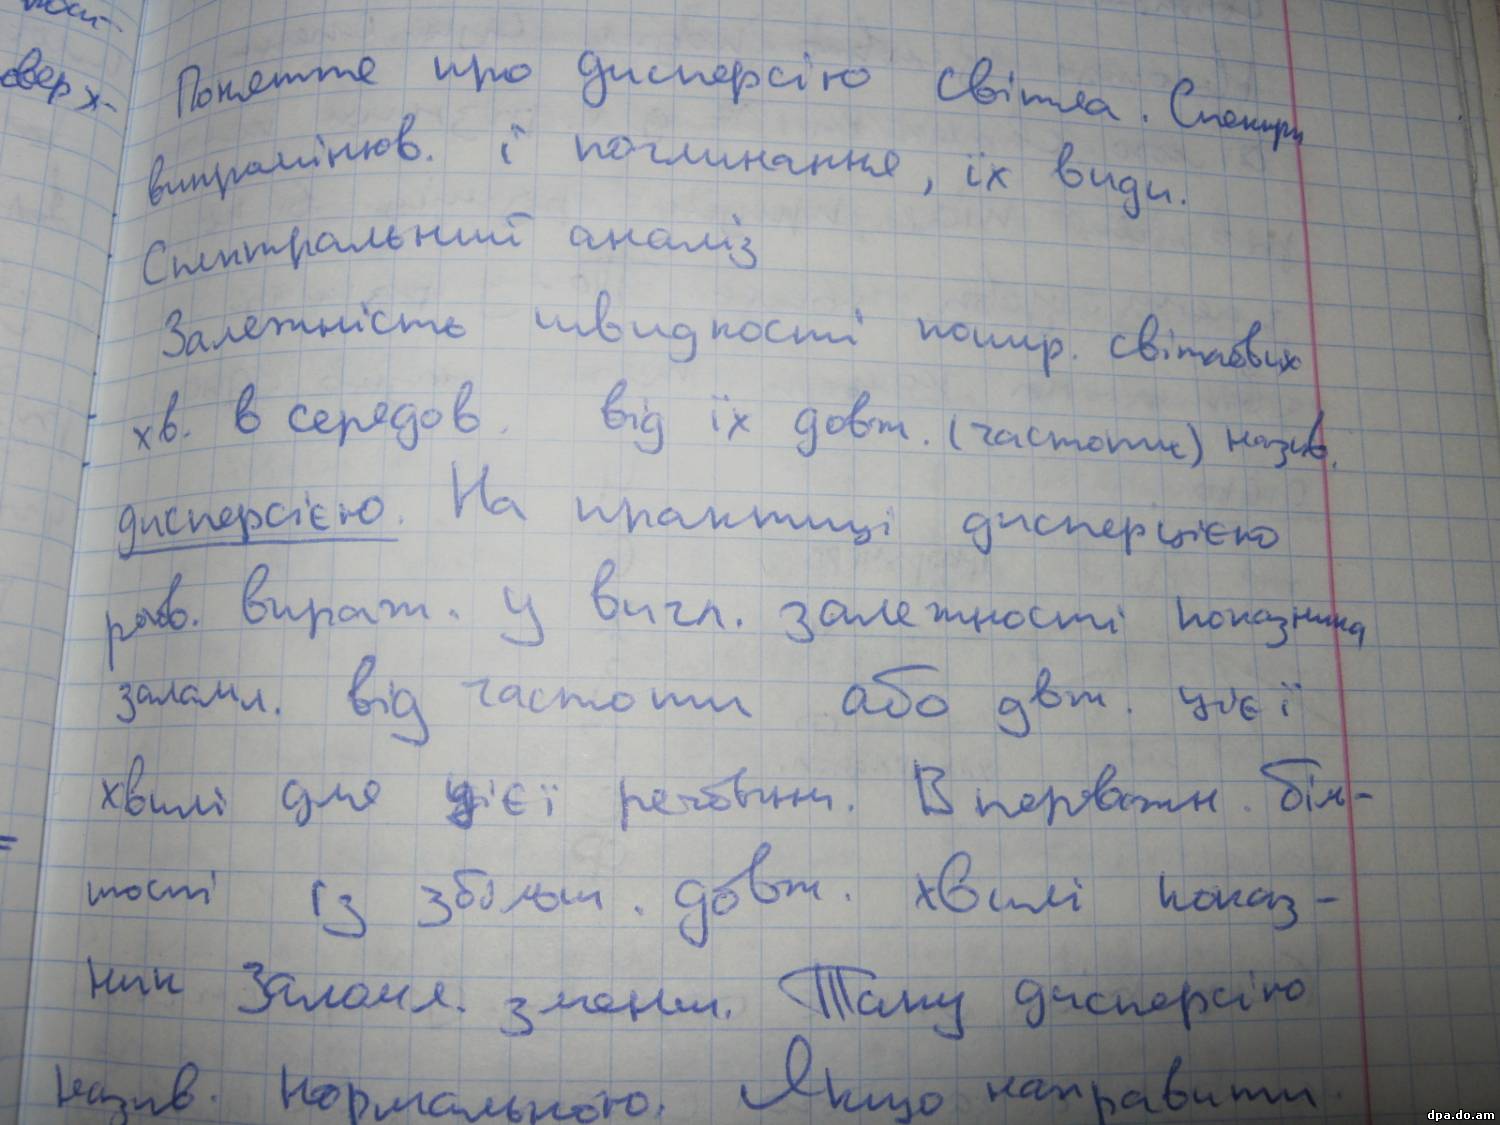 верх-
Поняття про дисперсію світла. Спектри
випромінюв. і поглинання, їх види.
Спектральний аналіз
Залежність швидкості пошир. світлових
хв. в середов. від їх довж. (частоти) назив.
дисперсією. На практиці дисперцією
вираж. у вигл. залежності показника
заломл. від частоти або двж. цієї
хвилі для цієї речовини. В переважн. біль-
шості із збільш. довж. хвилі показ-
ник Заломл. зменш. Таку дисперсію
назив. нормальною. Якщо направити
dpa.do.am